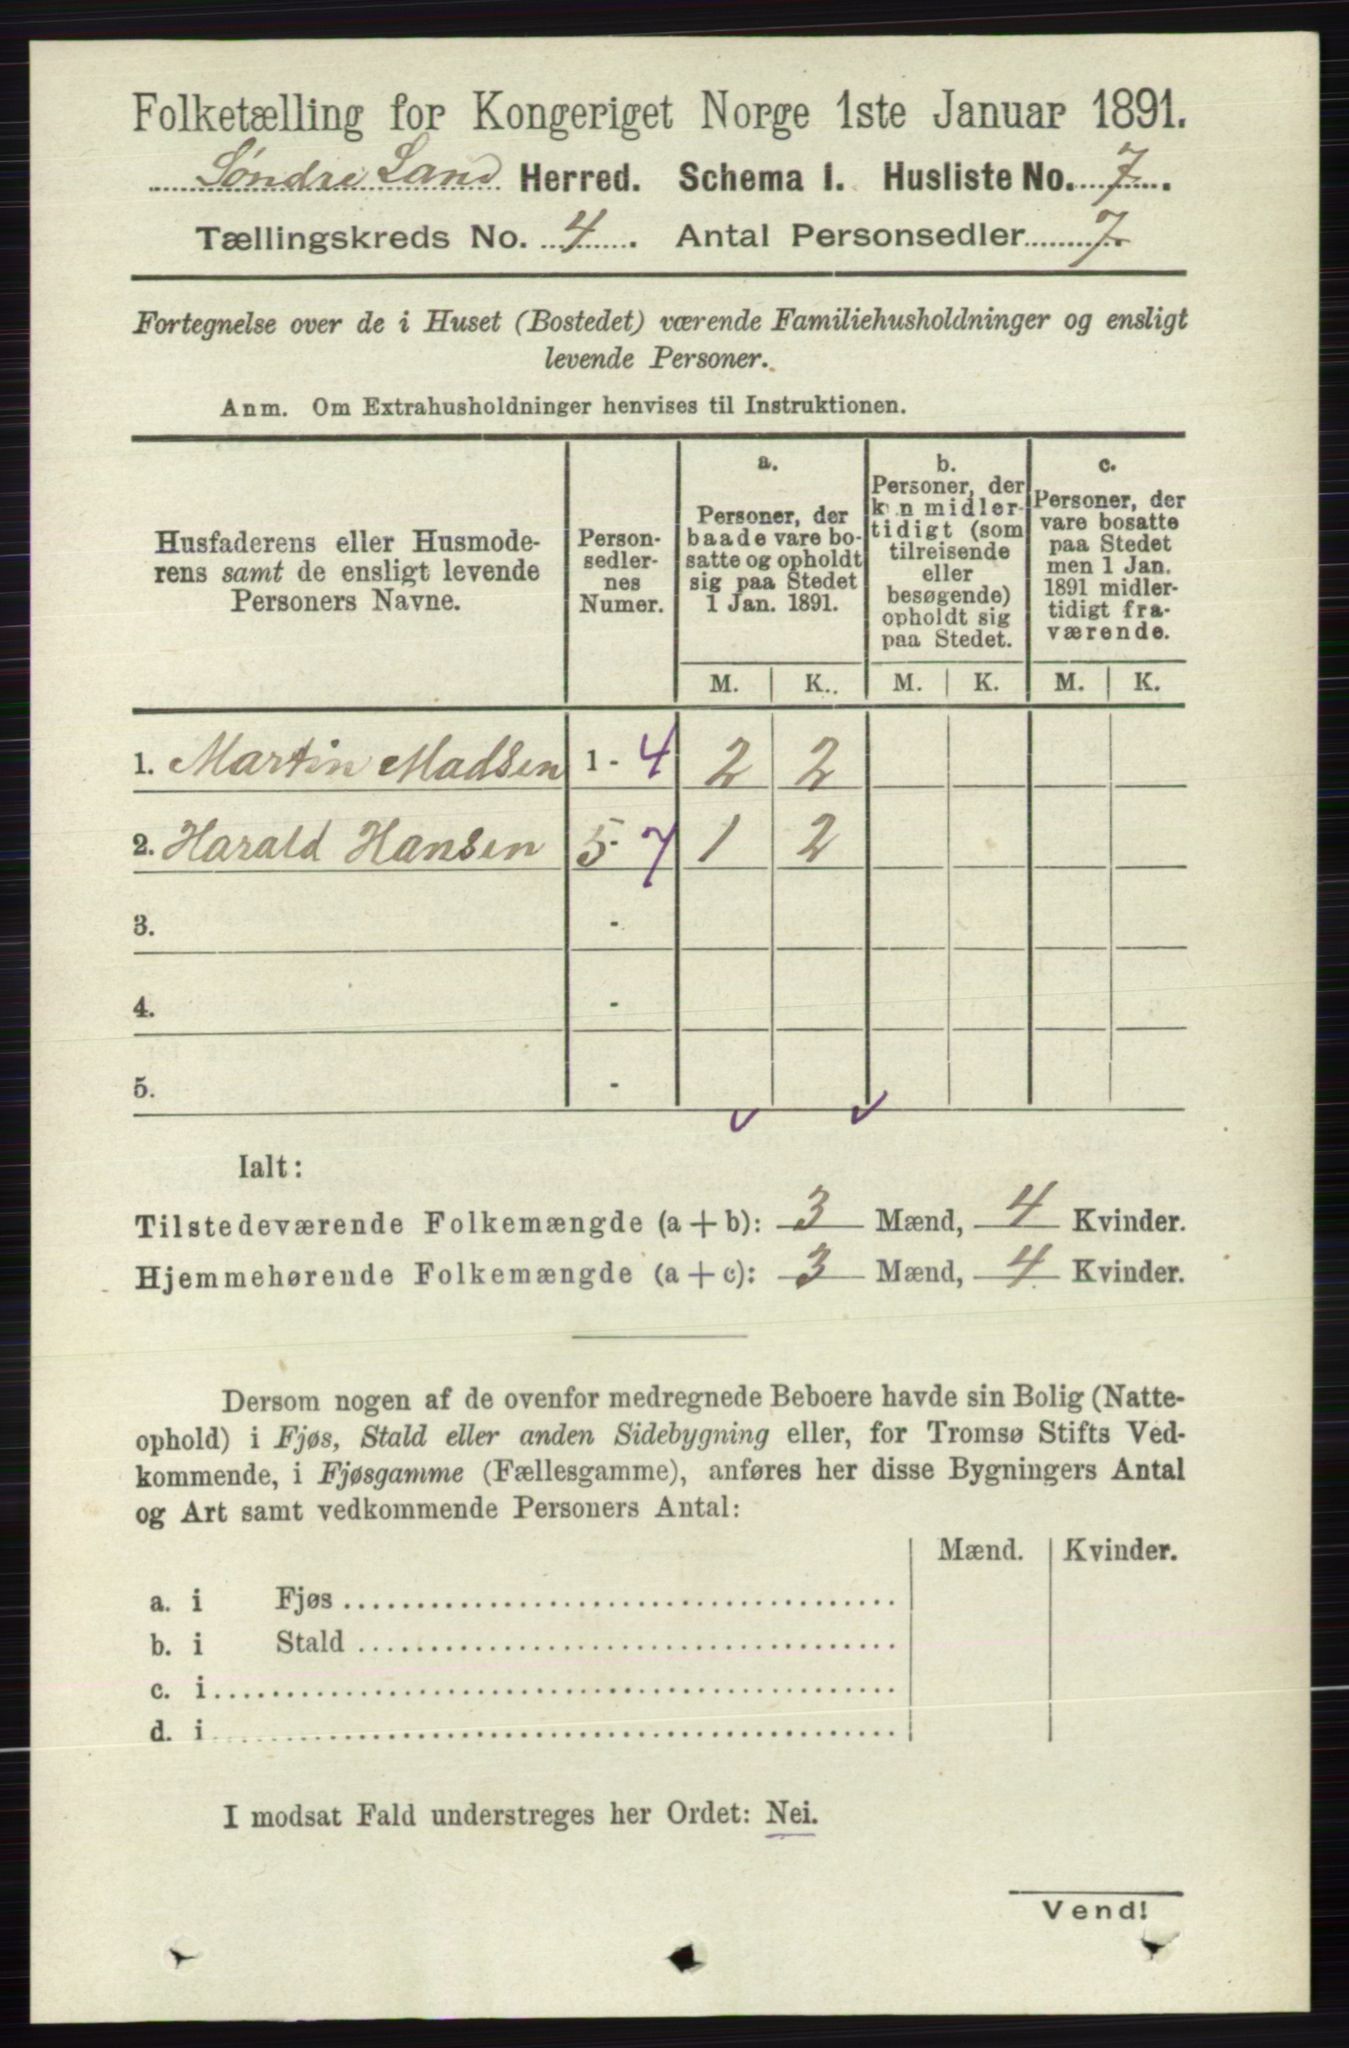 Folketælling for Kongeriget Norge 1ste Januar 1891.
Søndre Land Herred. Schema 1. Husliste No. 7.
Tællingskreds No. 4. Antal Personsedler 7.
Fortegnelse over de i Huset (Bostedet) værende Familiehusholdninger og ensligt
levende Personer.
Anm. Om Extrahusholdninger henvises til Instruktionen.
Husfaderens eller Husmode-
rens samt de ensligt levende
Personers Navne.
Person-
sedler-
nes
Numer.
a.
Personer, der
baade vare bo-
satte og opholdt
sig paa Stedet
1 Jan. 1891.
b.
Personer, der
kun midler-
tidigt (som
tilreisende
eller
besøgende)
opholdt sig
paa Stedet.
c.
Personer, der
vare bosatte
paa Stedet
men 1 Jan.
1891 midler-
tidigt fra-
værende.
M. K. M. K. M. K.
1. Martin Madsen 1 - 4 2 2
2. Harald Hansen 5 - 7 1 2
3. -
4. -
5. -
Ialt:
Tilstedeværende Folkemængde (a + b): 3 Mænd, 4 Kvinder.
Hjemmehørende Folkemængde (a + c): 3 Mænd, 4 Kvinder.
Dersom nogen af de ovenfor medregnede Beboere havde sin Bolig (Natte-
ophold) i Fjøs, Stald eller anden Sidebygning eller, for Tromsø Stifts Ved-
kommende, i Fjøsgamme (Fællesgamme), anføres her disse Bygningers Antal
og Art samt vedkommende Personers Antal:
Mænd. Kvinder.
a. i Fjøs
b. i Stald
c. i
d. i
I modsat Fald understreges her Ordet: Nei.
Vend!